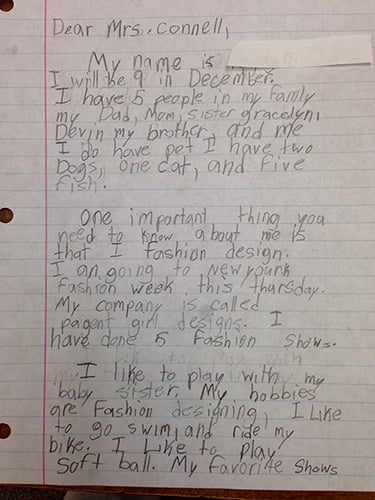 Dear Mrs. Connell,
My name is
I will be 9 in December.
I have 5 people in my family
my Dad, Mom, sister gracelyn,
Devin my brother, and me
I do have pet I have two
Dogs, one cat, and five
fish.
One important thing you
need to know about me is
that I fashion design.
I an going to newyourk
fashion week this thursday.
My company is called
pagent girl designs. I
have done 5 fashion shows.
I like to play with my
baby sister. My hobbies
are Fashion designing, I Like
to go swim, and ride my
bike. I Like to play
Soft ball. My favorite shows